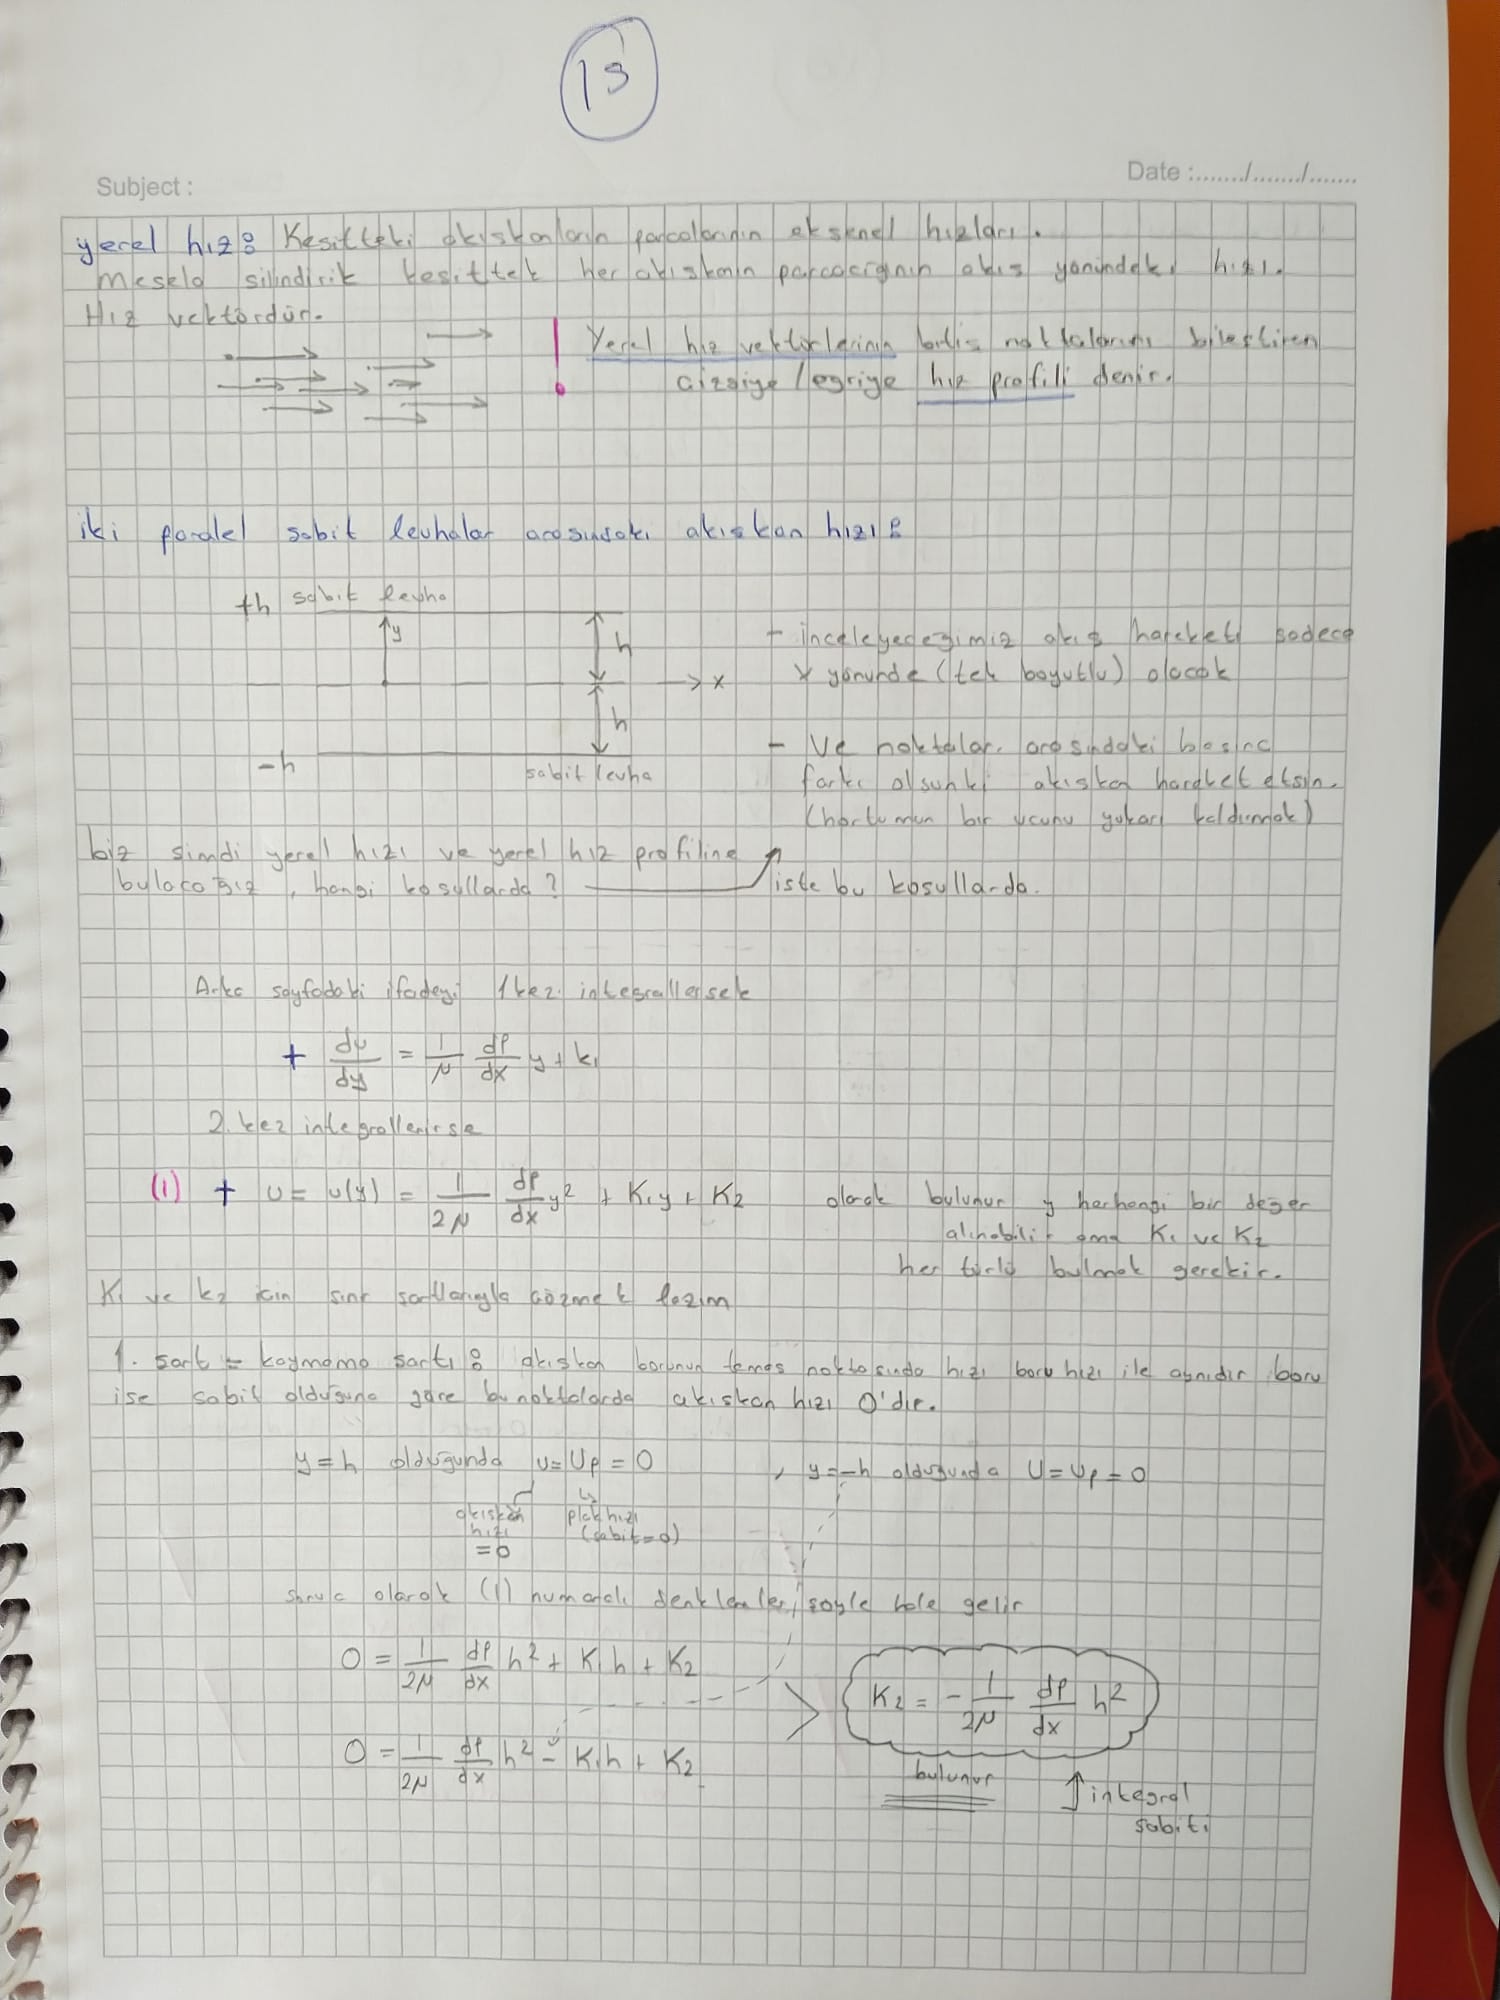 13
Subject :
Date :......./......./.......
yerel hız: Kesitteki akışkanların parçalarının eksenel hızları.
Mesela silindirik kesittek her akışkanın parçacığının akış yönündeki hızı.
Hız vektördür.
! Yerel hız vektörlerinin bitiş noktalarını birleştiren
çizgiye/eğriye hız profili denir.
iki paralel sabit levhalar arasındaki akışkan hızı:
+h sabit levha
y
h
x
h
-h
sabit levha
- inceleyeceğimiz akış hareketi sadece
x yönünde (tek boyutlu) olacak
- Ve noktalar arasındaki basınç
farkı olsunki akışkan hareket etsin.
(hortumun bir ucunu yukarı kaldırmak)
biz şimdi yerel hızı ve yerel hız profiline
bulacağız, hangi koşullarda? işte bu koşullarda.
Arka sayfadaki ifadeyi 1 kez integrallersek
+ du/dy = 1/μ dP/dx y + k₁
2. kez integrallenirse
(1) + u = u(y) = 1/2μ dP/dx y² + K₁y + K₂ olarak bulunur y herhangi bir değer
alınabilir ama K₁ ve K₂
her türlü bulmak gerekir.
K₁ ve k₂ için sınır şartlarıyla çözmek lazım
1. şart = kaymama şartı: akışkan borunun temas noktasında hızı boru hızı ile aynıdır boru
ise sabit olduğuna göre bu noktalarda akışkan hızı 0'dır.
y=h olduğunda u=Up=0 , y=-h olduğunda U=Up=0
akışkan hızı =0
plak hızı (sabit=0)
sonuç olarak (1) numaralı denklemler şöyle hale gelir
0 = 1/2μ dP/dx h² + K₁h + K₂
0 = 1/2μ dP/dx h² - K₁h + K₂
> K₂ = - 1/2μ dP/dx h²
bulunur
↑ integral
sabiti